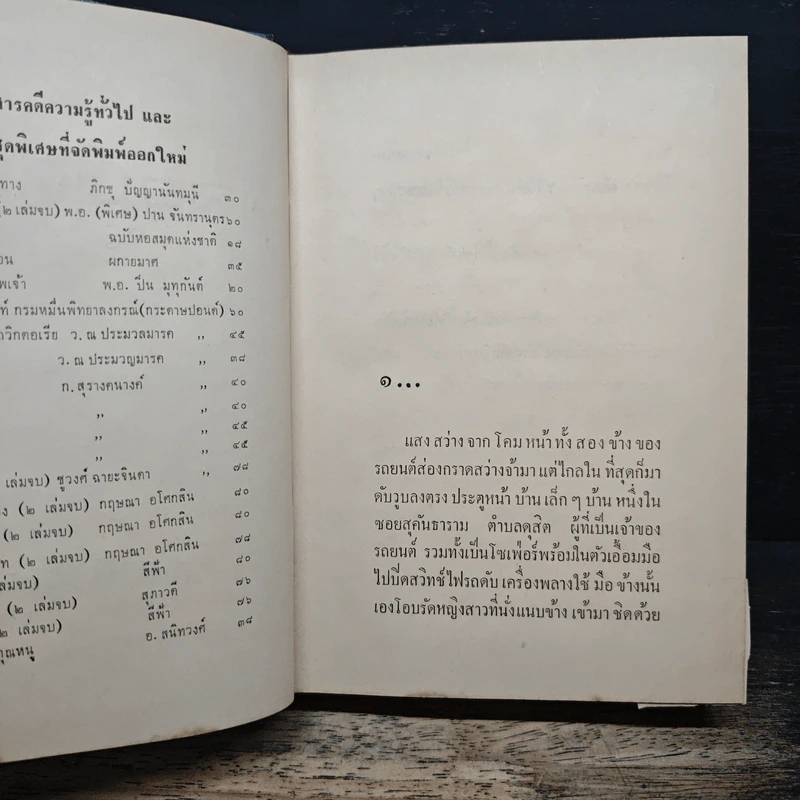 สารคดีความรู้ทั่วไป และ
ชุดพิเศษที่จัดพิมพ์ออกใหม่
ทาง ภิกขุ ปัญญานันทมุนี ๓๐
(๒ เล่มจบ) พ.อ. (พิเศษ) ปาน จันทรานุตร ๖๐
ฉบับหอสมุดแห่งชาติ ๑๘
อน ผกายมาศ ๓๕
พเจ้า พ.อ. ปิ่น มุทุกันต์ ๒๐
ท์ กรมหมื่นพิทยาลงกรณ์(กระดาษปอนด์) ๖๐
วิกตอเรีย ว. ณ ประมวลมารค ,, ๔๕
ว. ณ ประมวญมารค ,, ๓๘
ก. สุรางคนางค์ ,, ๔๐
,, ,, ๔๐
,, ,, ๔๕
,, ,, ๔๕
เล่มจบ) ชูวงศ์ ฉายะจินดา ,, ๗๘
ง (๒ เล่มจบ) กฤษณา อโศกสิน ๘๐
(๒ เล่มจบ) กฤษณา อโศกสิน ๘๐
ท (๒ เล่มจบ) กฤษณา อโศกสิน ๗๘
เล่มจบ) สีฟ้า ๘๐
(๒ เล่มจบ) สุภาวดี ๗๖
๒ เล่มจบ) สีฟ้า ๗๖
คุณหนู อ. สนิทวงศ์ ๓๘
๑...
แสง สว่าง จาก โคม หน้า ทั้ง สอง ข้าง ของ
รถยนต์ส่องกราดสว่างจ้ามา แต่ไกลใน ที่สุดก็มา
ดับวูบลงตรง ประตูหน้า บ้าน เล็ก ๆ บ้าน หนึ่งใน
ซอยสุคันธาราม ตำบลดุสิต ผู้ที่เป็นเจ้าของ
รถยนต์ รวมทั้งเป็นโซเฟ่อร์พร้อมในตัวเอื้อมมือ
ไปบี่ดสวิทช์ไฟรถดับ เครื่องพลางใช้ มือ ข้างนั้น
เองโอบรัดหญิงสาวที่นั่งแนบข้าง เข้ามา ชิดด้วย